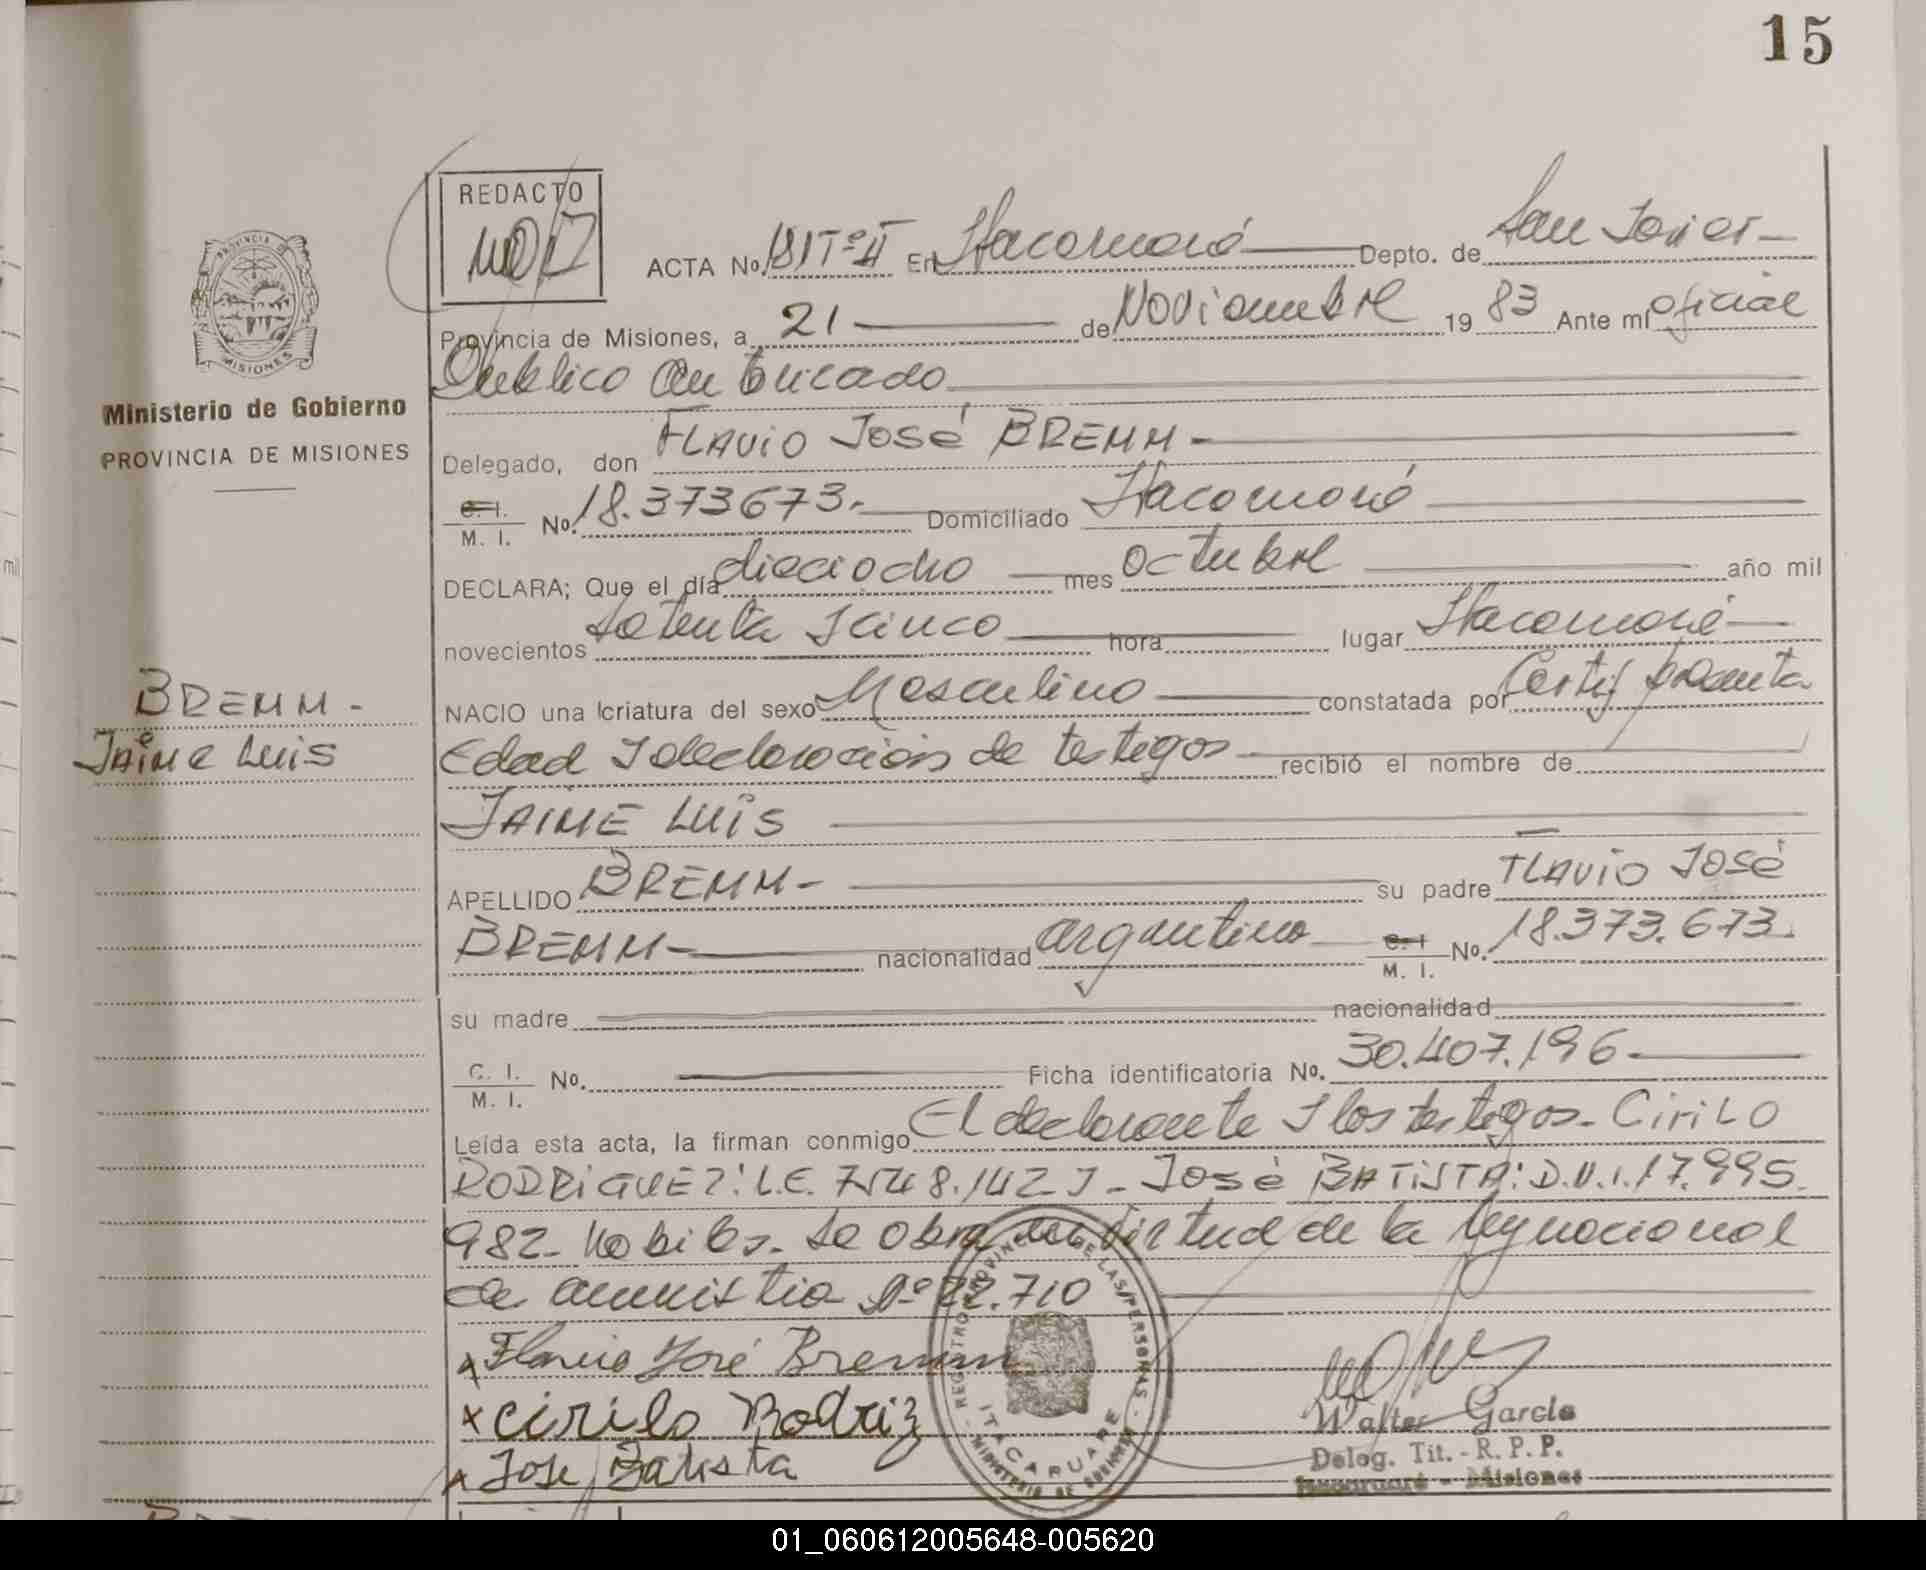 15
REDACTO
ACTA No. 181 Tº II En Itacaruaré Depto. de San Javier
Provincia de Misiones, a 21 de Noviembre 1983 Ante mí oficial
Publico autorizado
Delegado, don FLAVIO JOSÉ BREMM
C. I. M. I. No. 18.373673. Domiciliado Itacaruaré
DECLARA; Que el día dieciocho mes octubre año mil
novecientos setenta y cinco hora lugar Itacaruaré
NACIO una criatura del sexo Masculino constatada por Certif presunta
Edad y declaración de testigos recibió el nombre de
JAIME LUIS
APELLIDO BREMM su padre FLAVIO JOSÉ
BREMM nacionalidad argentino C. I. M. I. No. 18.373.673.
su madre nacionalidad
C. I. M. I. No. Ficha identificatoria No. 30.407.196
Leída esta acta, la firman conmigo El declarante y los testigos. CIRILO
RODRIGUEZ: L.E. 7.548.142 y JOSÉ BATISTA: D.N.I. 17.995.
982 habiles. se obra en virtud de la ley nacional
de amnistia nº 22.710
x Flavio José Bremm
x cirilo Rodriz
x Jose Batista
Walter García
Deleg. Tit. - R. P. P.
Itacaruaré - Misiones
REGISTRO PROVINCIAL DE LAS PERSONAS
ITACARUARE
MINISTERIO DE GOBIERNO
PROVINCIA DE
MISIONES
Ministerio de Gobierno
PROVINCIA DE MISIONES
BREMM
JAIME LUIS
01_060612005648-005620